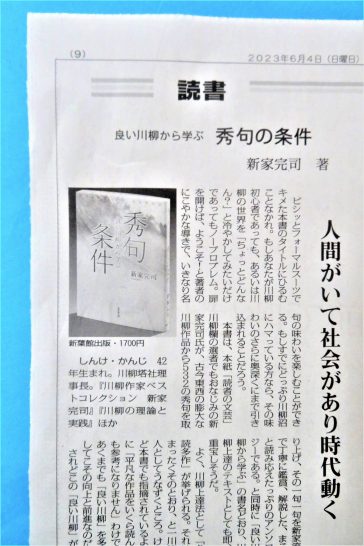 (9)
2023年6月4日(日曜日)
読書
良い川柳から学ぶ 秀句の条件
新家完司 著
人間がいて社会があり時代動く
ビシッとフォーマルスーツで
キメた本書のタイトルにひるむ
ことなかれ。もしあなたが川柳
初心者であっても、あるいは川
柳の世界を「ちょっとどんな
ん?」と冷やかしてみたいだけ
であってもノープロブレム。扉
を開けば、ようこそ!と著者の
にこやかな導きで、いきなり名
句の味わいを楽しむことができ
る。もしすでにどっぷり川柳沼
にハマっているかたなら、その味
わいのさらに奥深くにまで引き
込まれることだろう。
本書は、本紙「読者の文芸」
川柳欄の選者でもおなじみの新
家完司氏が、古今東西の膨大な
川柳作品から532の秀句を取
秀句の条件
新家完司
新葉館出版・1700円
しんけ・かんじ 42
年生まれ。川柳塔社理
事長。『川柳作家ベス
トコレクション 新家
完司』『川柳の理論と
実践』ほか
り上げ、その一句一句を新家流
で丁寧に鑑賞、解説した、
と読み応えたっぷりのアンソロ
ジーである。と同時に「良い川
柳から学ぶ」の書名どおり、川
柳上達のテキストとしても
重宝しそうだ。
よく、川柳上達法として「
読多作」が挙げられる。それ
まったくそのとおり、と一川柳
人としてうなずくところ
ど本書でも指摘されているよ
に「平凡な作品をいくら読ん
も参考になりません」わけで
あくまでも「良い川柳」を
してこその向上と前進なのだ
されどこの「良い川柳」が